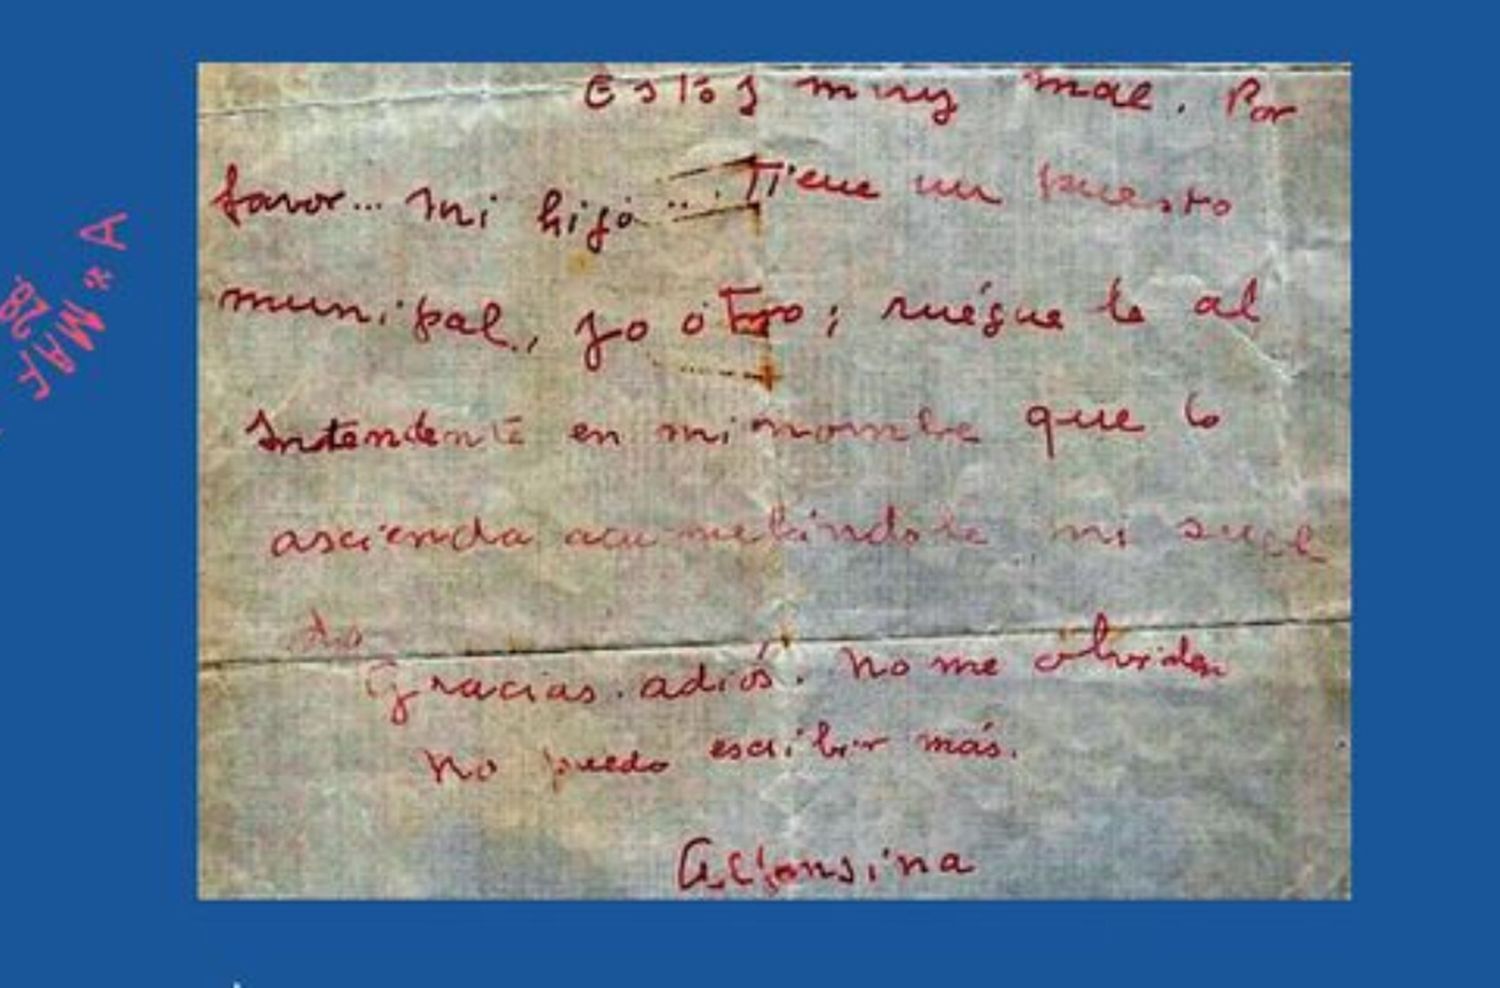 Estoy muy mal. Por
favor... mi hijo... Tiene un puesto
munipal, yo otro; ruéguele al
Intendente en mi nombre que lo
ascienda acumulándole mi suel
do
Gracias. adiós. No me olviden
No puedo escribir más.
Alfonsina
A * MAR
28